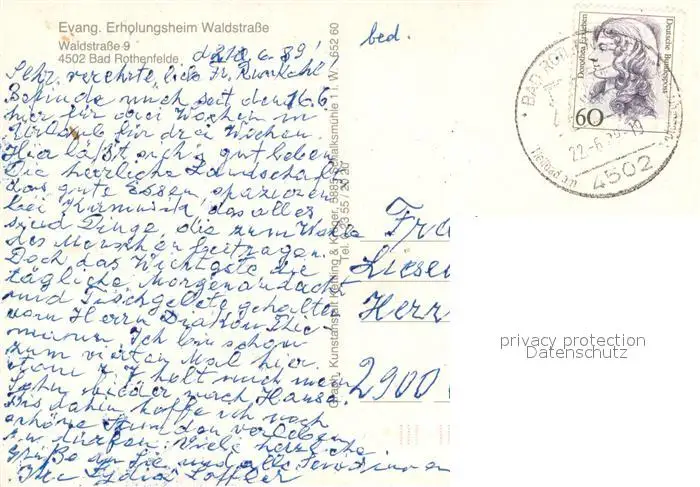 Evang. Erholungsheim Waldstraße
Waldstraße 9
4502 Bad Rothenfelde
6.89
bed.
Sehr verehrte liebe Fr.
Befinde mich seit dem 16.6.
hier für drei Wochen in
Urlaub für drei Wochen.
Hier läßt sich's gut leben
Die herrliche Landschaft
das gute Essen, spazieren
bei das alles
sind Dinge, die zum Wohle
des Menschen beitragen.
Doch das Wichtigste die
tägliche Morgenandacht
und Tischgebete gehalten
vom Herrn Diakon
Ich bin schon
zum vierten Mal hier.
holt mich mein
Sohn wieder nach Hause.
Bis dahin hoffe ich noch
schöne Stunden verleben
zu dürfen. Viele herzliche
Grüße an Sie und alle
Ihre Lydia Löffler
Graph. Kunstanstalt Kehling & Krüger, 5885 Schalksmühle 1 I. W. 652 60
Tel. 0 23 55 / 20 20
Dorothea Erxleben
Deutsche Bundespost
60
BAD
22.-6.89
Heilbad am
4502
Fra
Liesel
Herr
2900
privacy protection
Datenschutz